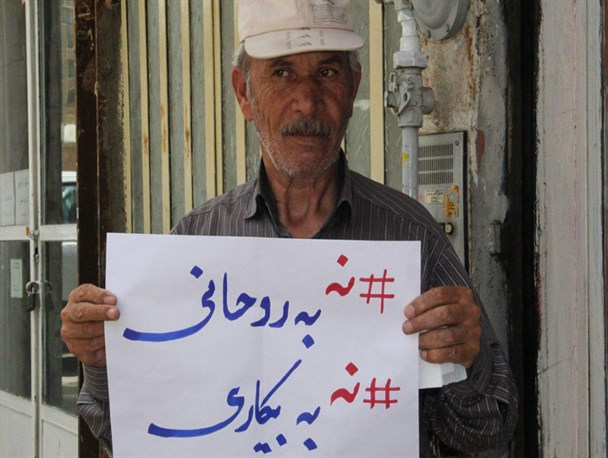 #نه به روحانی
#نه به بیکاری